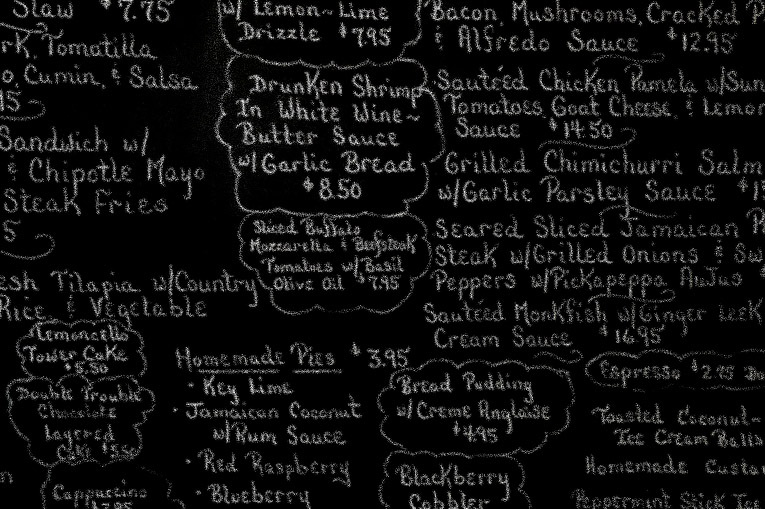 Slaw $7.75
rk, Tomatilla
o, Cumin, & Salsa
Sandwich w/
& Chipotle Mayo
Steak Fries
esh Tilapia w/Country
Rice & Vegetable
Lemoncello
Tower Cake
$5.50
Double Trouble
Chocolate
Layered
Cake
Cappuccino
w/ Lemon~Lime
Drizzle $7.95
Drunken Shrimp
In White Wine~
Butter Sauce
w/Garlic Bread
$8.50
Sliced Buffalo
Mozzarella & Beefsteak
Tomatoes w/Basil
Olive Oil $7.95
Homemade Pies $3.95
· Key Lime
· Jamaican Coconut
w/Rum Sauce
· Red Raspberry
· Blueberry
Bacon, Mushrooms, Cracked P
& Alfredo Sauce $12.95
Sautéed Chicken Pamela w/Sun
Tomatoes, Goat Cheese, & Lemon
Sauce $14.50
Grilled Chimichurri Salm
w/Garlic Parsley Sauce
Seared Sliced Jamaican
Steak w/Grilled Onions & Sw
Peppers w/Pickapeppa AuJus
Sautéed Monkfish w/Ginger Leek
Cream Sauce $16.95
Bread Pudding
w/Creme Anglaise
$4.95
Blackberry
Cobbler
Espresso
Toasted Coconut-
Ice Cream Balls
Homemade Custa
Peppermint Stick Ice